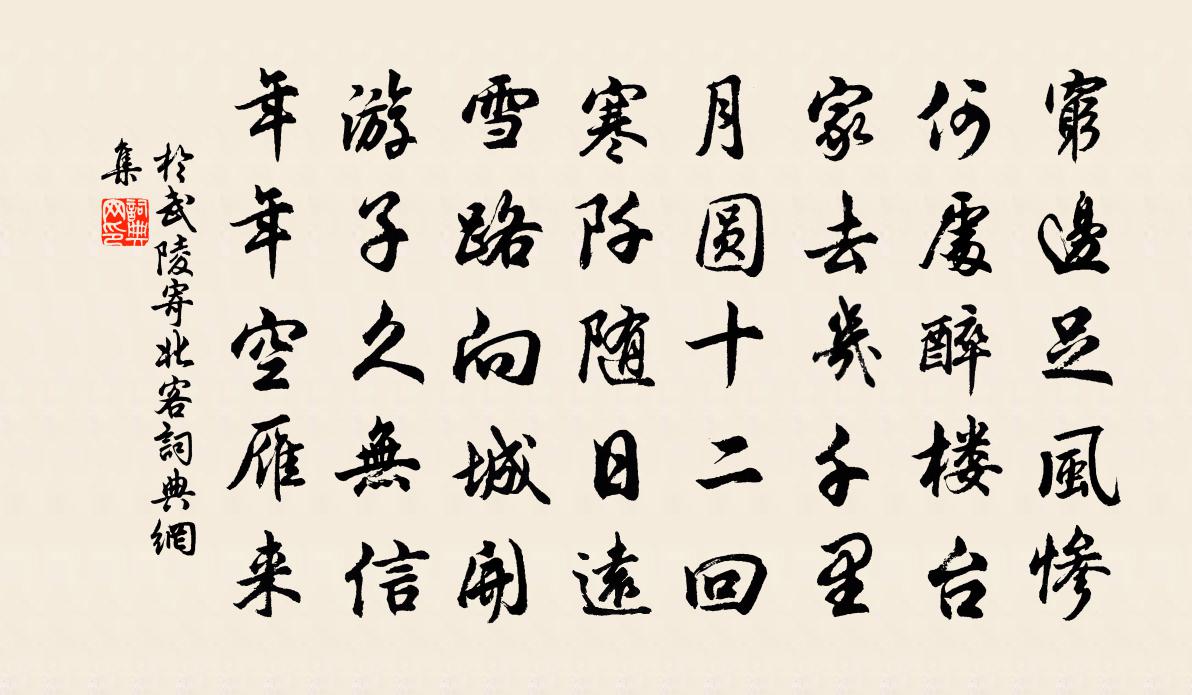 窮邊足風慘
何處醉楼台
家去幾千里
月圆十二回
寒阡随日遠
雪路向城開
游子久無信
年年空雁来
於武陵寄北客詞典網
集
詞典
网印